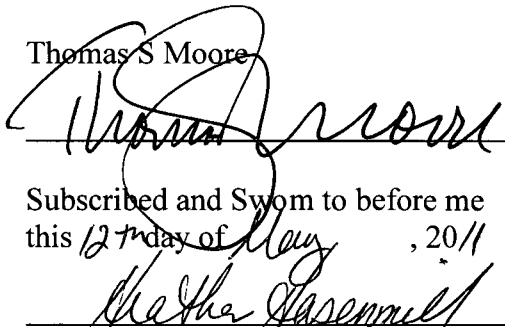 Thomas S Moore
Thomas S Moore
Subscribed and Sworn to before me
this 12th day of May, 2011
Heather